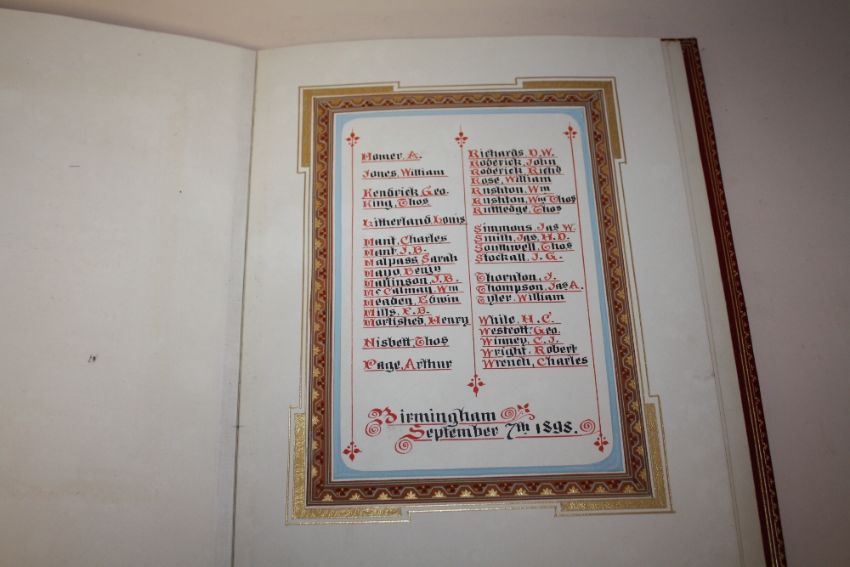 Homer, A.
Jones, William
Kendrick, Geo.
King, Thos
Litherland, Louis
Mant, Charles
Mant, J. B.
Malpass, Sarah
Mayo Benjn
Mallinson, J. B.
McCalmay, Wm
Meaden, Edwin
Mills, F. B.
Mortished, Henry
Nisbett, Thos
Page, Arthur
Richards, D. W.
Roderick, John
Roderick, Richd
Rose, William
Rushton, Wm
Rushton, Wm Thos
Ruttledge, Thos
Simmons, Jas W.
Smith, Jas, H. D.
Southwell, Thos
Stockall, J. G.
Thornton, J.
Thompson, Jas A.
Tyler, William
White, H. C.
Westcott, Geo.
Winney, C. J.
Wright, Robert
Wrench, Charles
Birmingham
September 7th 1898.